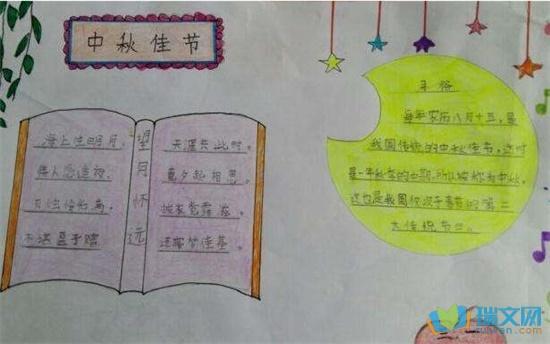 中秋佳节
海上生明月,
情人怨遥夜,
灭烛怜光满,
不堪盈手赠
望月怀远
天涯共此时。
竟夕起相思。
披衣觉露滋。
还寝梦佳期。
习俗
每年农历八月十五,是
我国传统的中秋佳节,这时
是一年秋季的中期,所以被称为中秋。
这也是我国仅次于春节的第二
大传统节日。
瑞文网